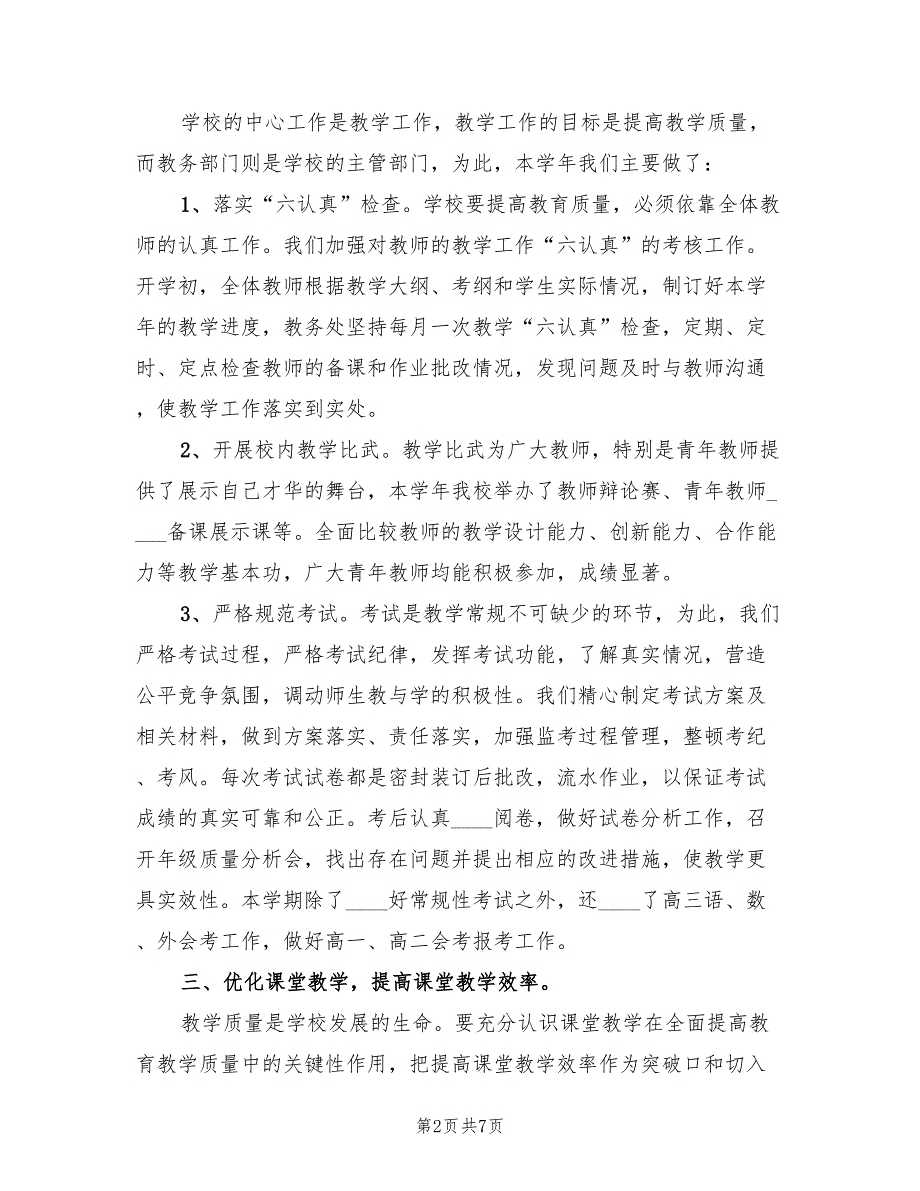 学校的中心工作是教学工作，教学工作的目标是提高教学质量，
而教务部门则是学校的主管部门，为此，本学年我们主要做了：
1、落实“六认真”检查。学校要提高教育质量，必须依靠全体教
师的认真工作。我们加强对教师的教学工作“六认真”的考核工作。
开学初，全体教师根据教学大纲、考纲和学生实际情况，制订好本学
年的教学进度，教务处坚持每月一次教学“六认真”检查，定期、定
时、定点检查教师的备课和作业批改情况，发现问题及时与教师沟通
，使教学工作落实到实处。
2、开展校内教学比武。教学比武为广大教师，特别是青年教师提
供了展示自己才华的舞台，本学年我校举办了教师辩论赛、青年教师_
___备课展示课等。全面比较教师的教学设计能力、创新能力、合作能
力等教学基本功，广大青年教师均能积极参加，成绩显著。
3、严格规范考试。考试是教学常规不可缺少的环节，为此，我们
严格考试过程，严格考试纪律，发挥考试功能，了解真实情况，营造
公平竞争氛围，调动师生教与学的积极性。我们精心制定考试方案及
相关材料，做到方案落实、责任落实，加强监考过程管理，整顿考纪
、考风。每次考试试卷都是密封装订后批改，流水作业，以保证考试
成绩的真实可靠和公正。考后认真____阅卷，做好试卷分析工作，召
开年级质量分析会，找出存在问题并提出相应的改进措施，使教学更
具实效性。本学期除了____好常规性考试之外，还____了高三语、数
、外会考工作，做好高一、高二会考报考工作。
三、优化课堂教学，提高课堂教学效率。
教学质量是学校发展的生命。要充分认识课堂教学在全面提高教
育教学质量中的关键性作用，把提高课堂教学效率作为突破口和切入
第2页 共7页